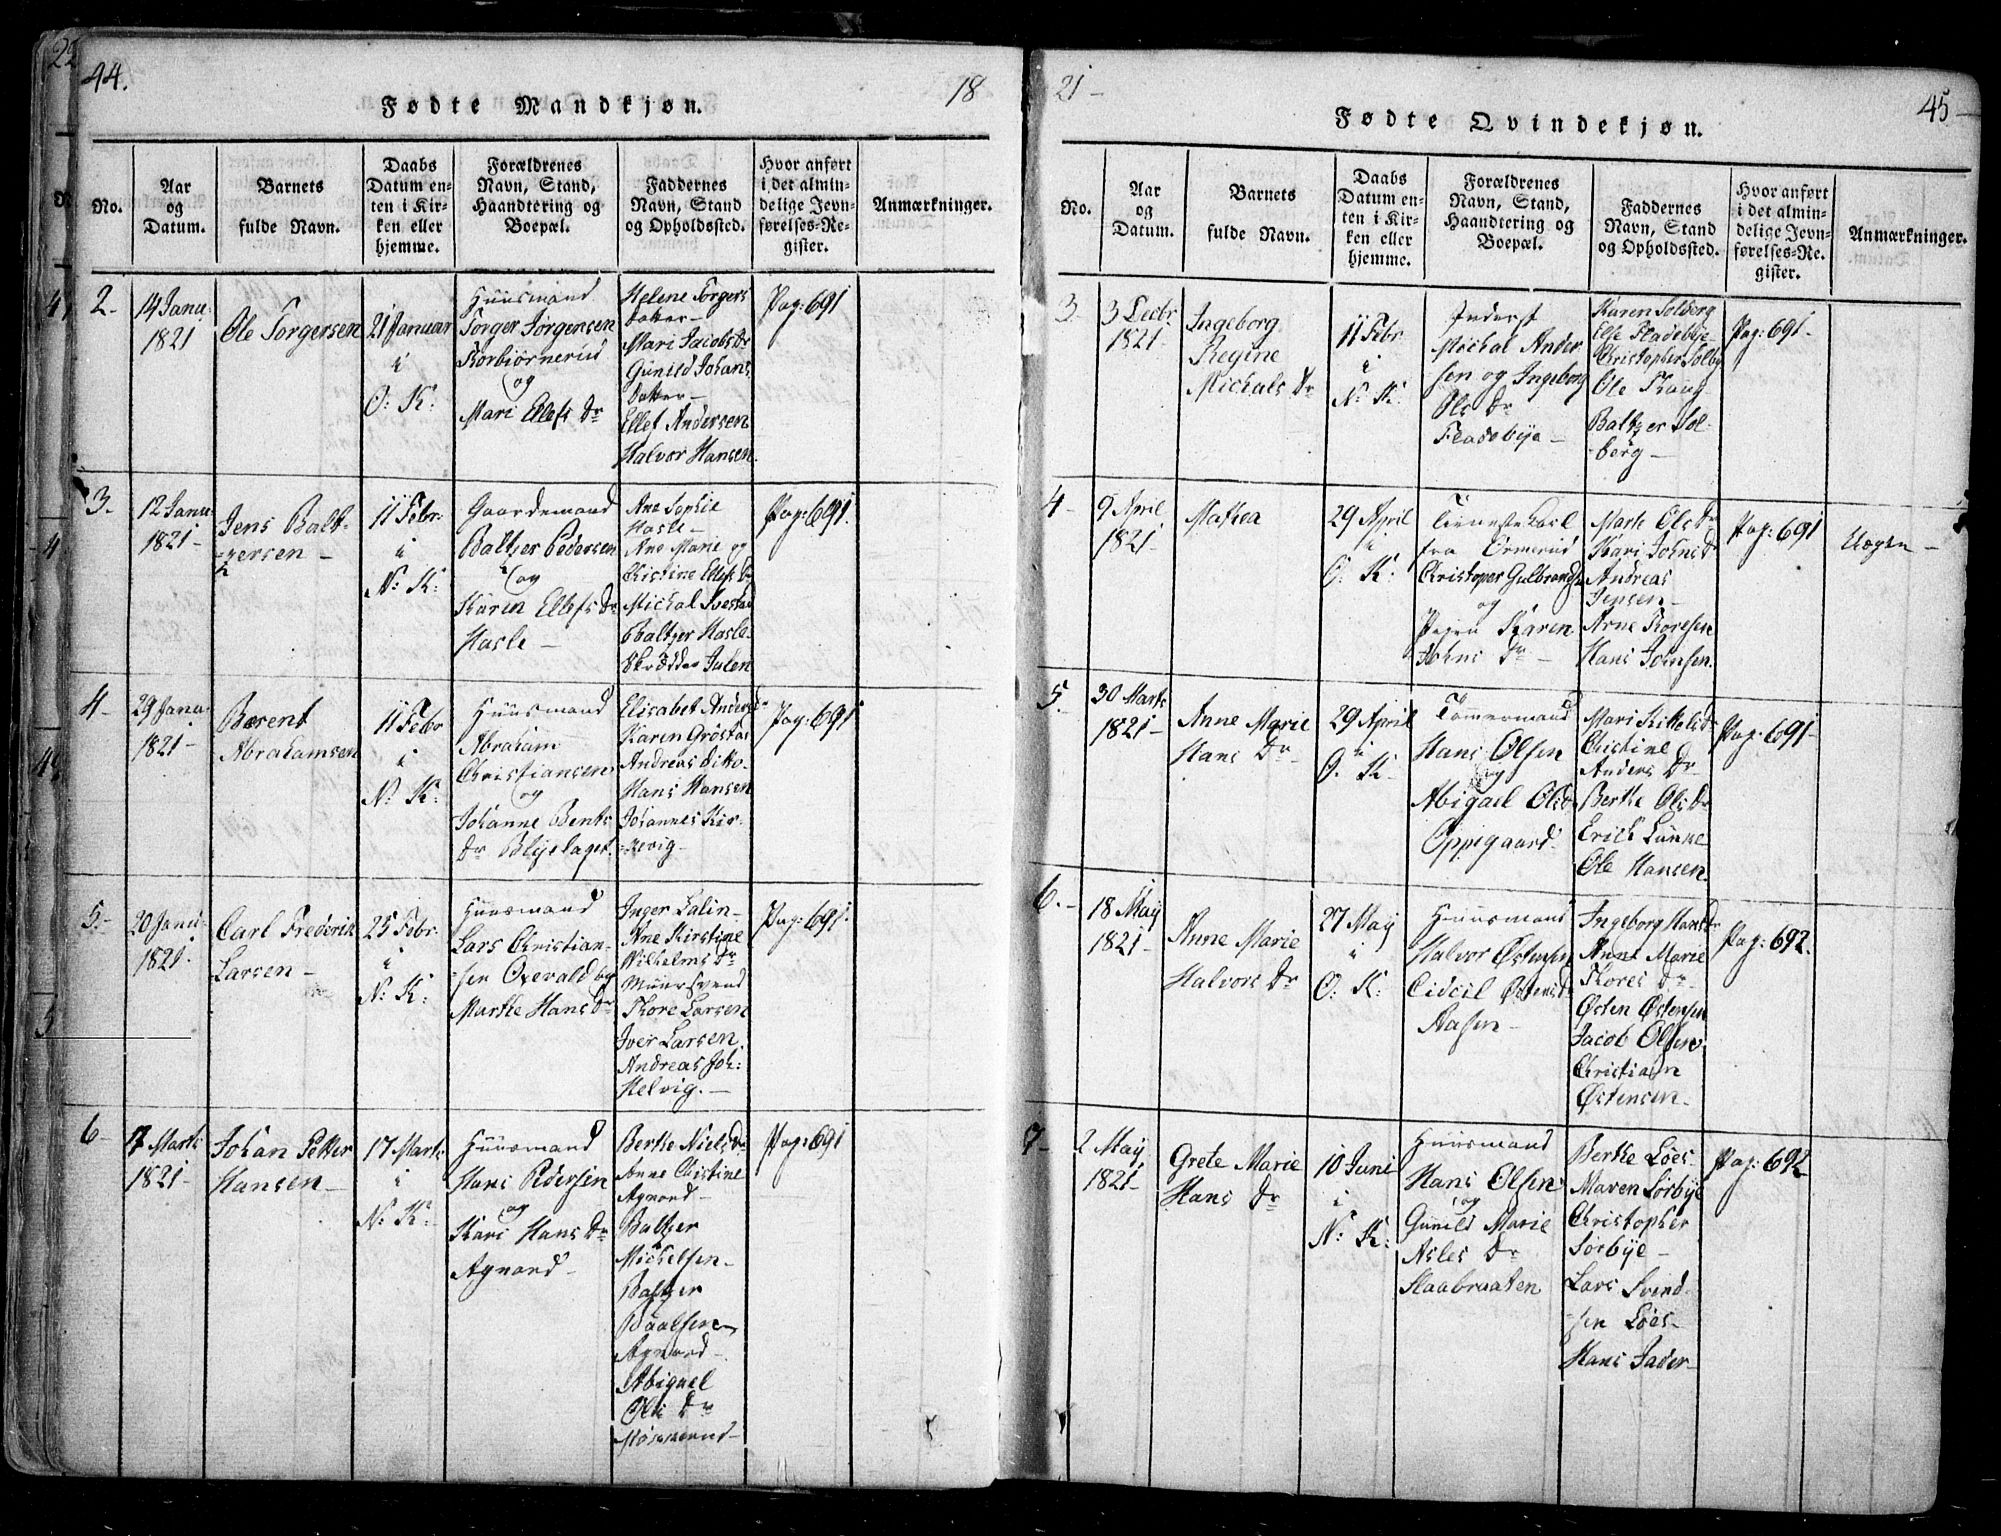 44.
18
Fødte Mandkjøn.
No.
Aar
og
Datum.
Barnets
fulde Navn.
Daabs
Datum en-
ten i Kir-
ken eller
hjemme.
Forældrenes
Navn, Stand,
Haandtering og
Boepæl.
Faddernes
Navn, Stand
og Opholdssted.
Hvor anført
i det almin-
delige Jevn-
førelses-Re-
gister.
Anmærkninger.
2-
14 Janu:
1821
Ole Torgersen
21 Januar
i
O: K:
Huusmand
Torger Jörgensen
Korbiörnerud
og
Mari Ellefs Dr
Helene Torgers
Datter-
Mari Jacobs Dr
Gunild Johans
Datter-
Ellef Andersen
Halvor Hansen.
Pag: 691
3.
12 Janu:
1821-
Jens Balt-
-zersen-
11 Febr:
i
N: K:
Gaardemand
Baltzer Pedersen
og
Karen Ellefs Dr
Hasle-
Ane Sophie
Hasle-
Ane Marie og
Christine Ellefs Dr
Michal
Baltzer Hasle-
Skrædder Julen
Pag: 691.
4-
29 Janu:
1821-
Bærent
Abrahamsen
11 Febr
i
N: K:
Huusmand
Abraham
Christiansen
og
Johanne Bents
Dr Blijelaget.
Elisabet Anders Dr
Karen Gröstad
Andreas ditto-
Hans Hansen
Johannes Kir-
-kevig-
Pag: 691
5.-
20 Janu:
1821-
Carl Frederik
Larsen-
25 Febr.
i
N: K:
Huusmand
Lars Christian-
-sen Oxevald og
Marthe Hans Dr
Inger Lalin-
Ane Kirstine
Wilhelms Dr
Muursvend
Thore Larsen
Iver Larsen.
Andreas Joh:
Helvig.-
Pag: 691.
6-
7 Marts
1821-
Johan Petter
Hansen-
17 Marts
i
N: K:-
Huusmand
Hans Pedersen
og
Kari Hans Dr
Agnord-
Berthe Niels Dr
Anne Christine
Agnord-
Baltzer
Michelsen-
Baltzer
Agnord-
Abigael
Ols Dr
Pag: 691
21-
45-
Fødte Qvindekjøn.
No.
Aar
og
Datum.
Barnets
fulde Navn.
Daabs
Datum en-
ten i Kir-
ken eller
hjemme.
Forældrenes
Navn, Stand,
Haandtering og
Boepæl.
Faddernes
Navn, Stand
og Opholdssted.
Hvor anført
i det almin-
delige Jevn-
førelses-Re-
gister.
Anmærkninger.
3.
3 Decbr
1821-
Ingeborg
Regine
Michals Dr
11 Febr
i
N: K:
Inderst
Michal Ander
sen og Ingeborg
Ols Dr
Fladebye-
Karen Solberg
Else Fladebye-
Christopher Solbg
Ole Skaug
Baltzer Sol-
-berg-
Pag: 691-
4-
9 April
1821-
Mathea
29 April
i
O: K:
Tienestekarl
fra Ormerud
Christopher Gulbrands
og
Pigen Karen
Johns Dr-
Marte Ols Dr
Kari Johns Dr
Andreas
Jensen-
Arne Thoresen
Hans Johnsen.
Pag: 691
Uægte-
5.
30 Marts
1821-
Anne Marie
Hans Dr
29 April
i
O: K-
Tömmermand
Hans Olsen
og
Abigael Ols Dr
Oppegaard-
Mari Kittels Dr
Christine
Anders Dr
Berthe Ols Dr
Erich Lunne
Ole Hansen.
Pag: 691-
6.-
18 May
1821-
Anne Marie
Halvors Dr
27 May
i
O: K:
Huusmand
Halvor Østensen
Cidcil Østens Dr
Aasen-
Ingeborg Hans Dr
Anne Marie
Thores Dr-
Østen Østensen
Jacob Olsen.
Christian
Østensen-
Pag: 692.
7-
2 May
1821-
Grete Marie
Hans Dr
10 Juni
i
N: K:
Huusmand
Hans Olsen
og
Gunild Marie
Asles Dr
Staabraaten
Berthe Löes-
Maren Sörbye
Christopher
Sörbye-
Lars Svend-
-sen Löes-
Hans Jader-
Pag: 692-